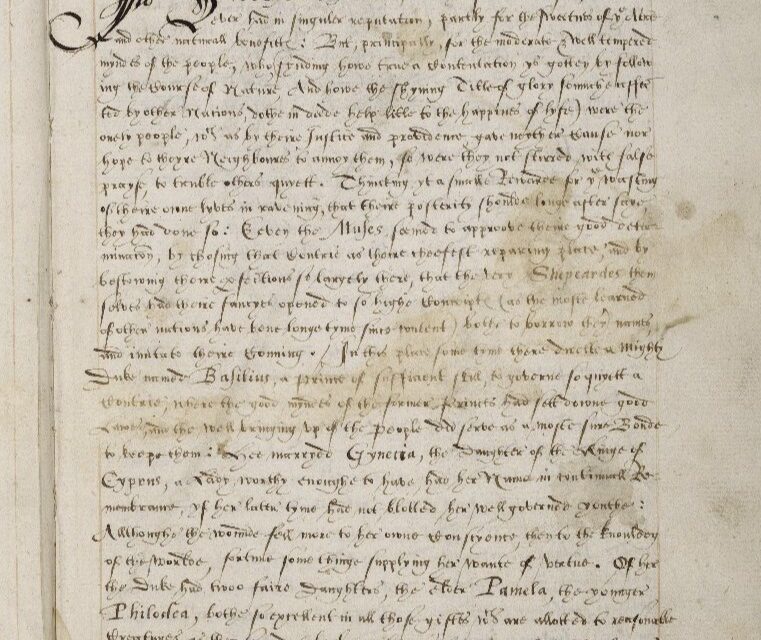 ever had in singuler reputation, partly for the sweetnes of yͤ Ayre
and other naturall benefitts: But, principally, for the moderate & well tempered
myndes of the people, who, fynding howe true a Contentation ys gotten by follow
ing the Course of Nature, And howe the shyning Title of glory somuche affec
ted by other Nations, dothe in deede help litle to the happines of lyfe) were the
onely people, wͨʰ as by theire Justice and providence, gave neyther Cause nor
hope to theyre Neighboures to annoy them, so were they not stirred with false
prayse, to truble others quyett. Thincking yt a smalle Rewarde for yͤ wasting
of theire owne lyves in ravening, that theire posterity shoulde longe after saye
they had done so: Eeven the Muses seemed to approove theire good deter
minacion, by chosing that Contrie as theire cheefest repairing place, and by
bestowing theire perfections so largely there, that the very Shepeardes them
selves had theire fancyes opened to so highe Conceiptes (as the moste learned
of other nations have bene longe tyme since content) bothe to borrow theyr names,
and imitate theire Conning. / In this place some tyme there dwelte a Mighty
Duke named Basilius, a prince of sufficient skill, to governe so quyett a
Contrie, where the good myndes of the former Princes had sett downe good
Lawes, and the well bringing up of the People did serve as a moste sure Bonde
to keepe them: Hee marryed Gynecia, the Daughter of the Kinge of
Cyprus, a Lady, worthy enoughe to have had her Name in continuall Re
membrance, yf her latter tyme had not blotted her well governed youthe:
Allthoughe the wounde fell more to her owne Conscyence, then to the knowledg
of the worlde, fortune some thinge supplying her wante of vertue. Of her
the Duke had twoo faire Daughters, the elder Pamela, the younger
Philoclea, bothe so excellent in all those giftes wͨʰ are allotted to reasonable
Creatures, as they